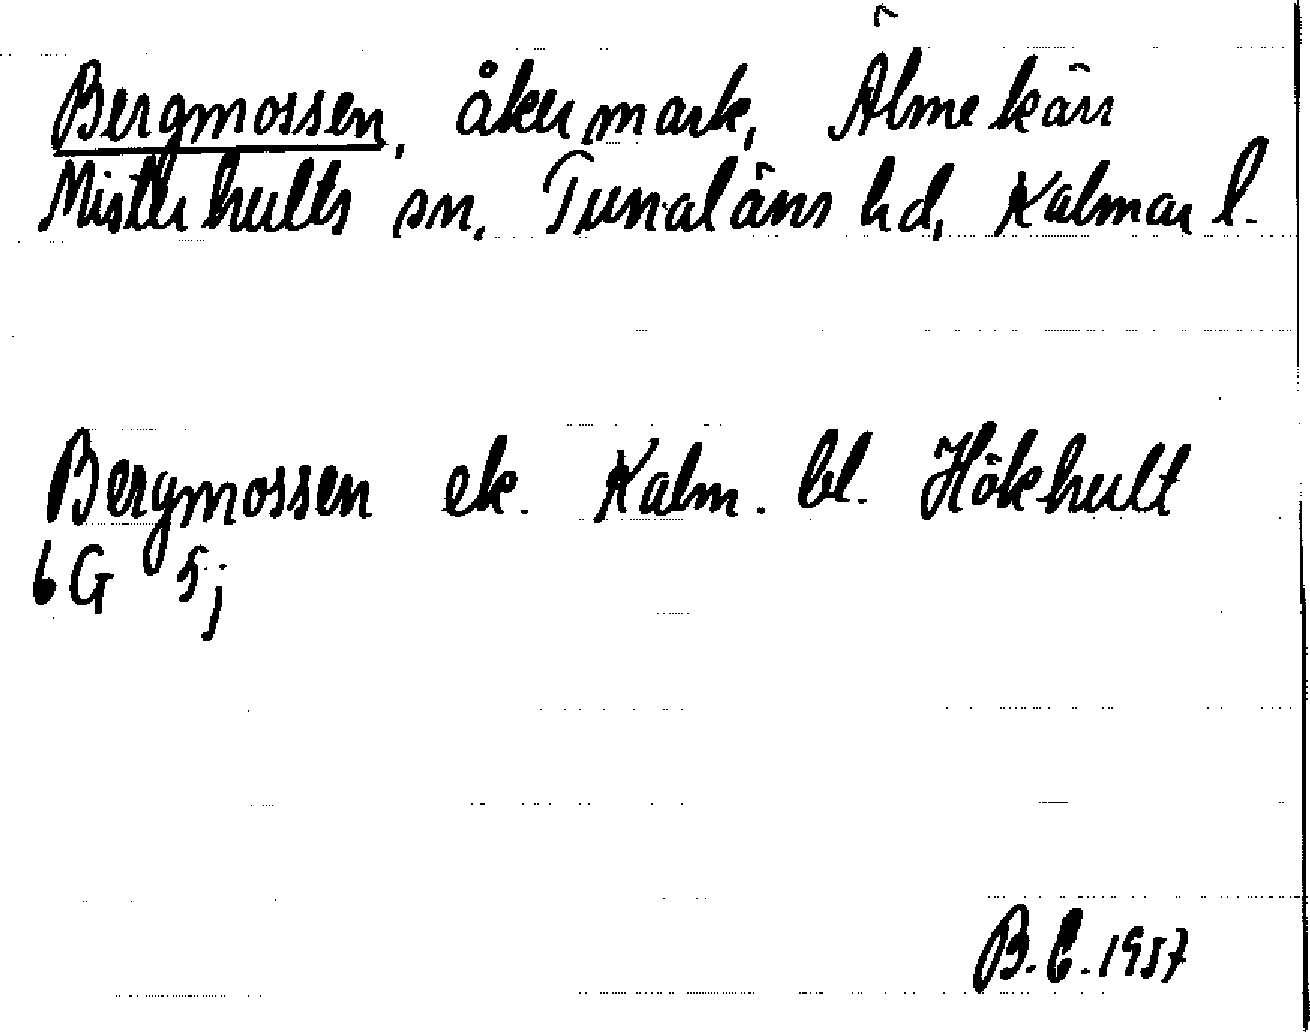 Bergmossen, åkermark, Älmekärr
Misterhults sn. Tunaläns hd, Kalmar l.
Bergmossen ek. Kalm. bl. Hökhult
6G 5j
B.E. 1957